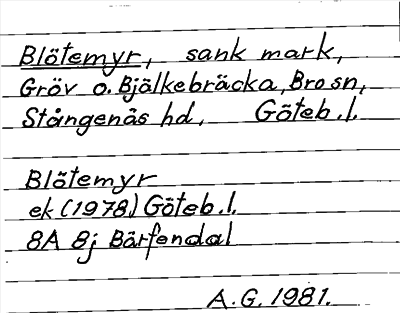 Blötemyr, sank mark,
Gröv o. Bjälkebräcka, Bro sn,
Stångenäs hd, Göteb. l.
Blötemyr
ek (1978) Göteb. l.
8A 8j Bärfendal
A. G. 1981.